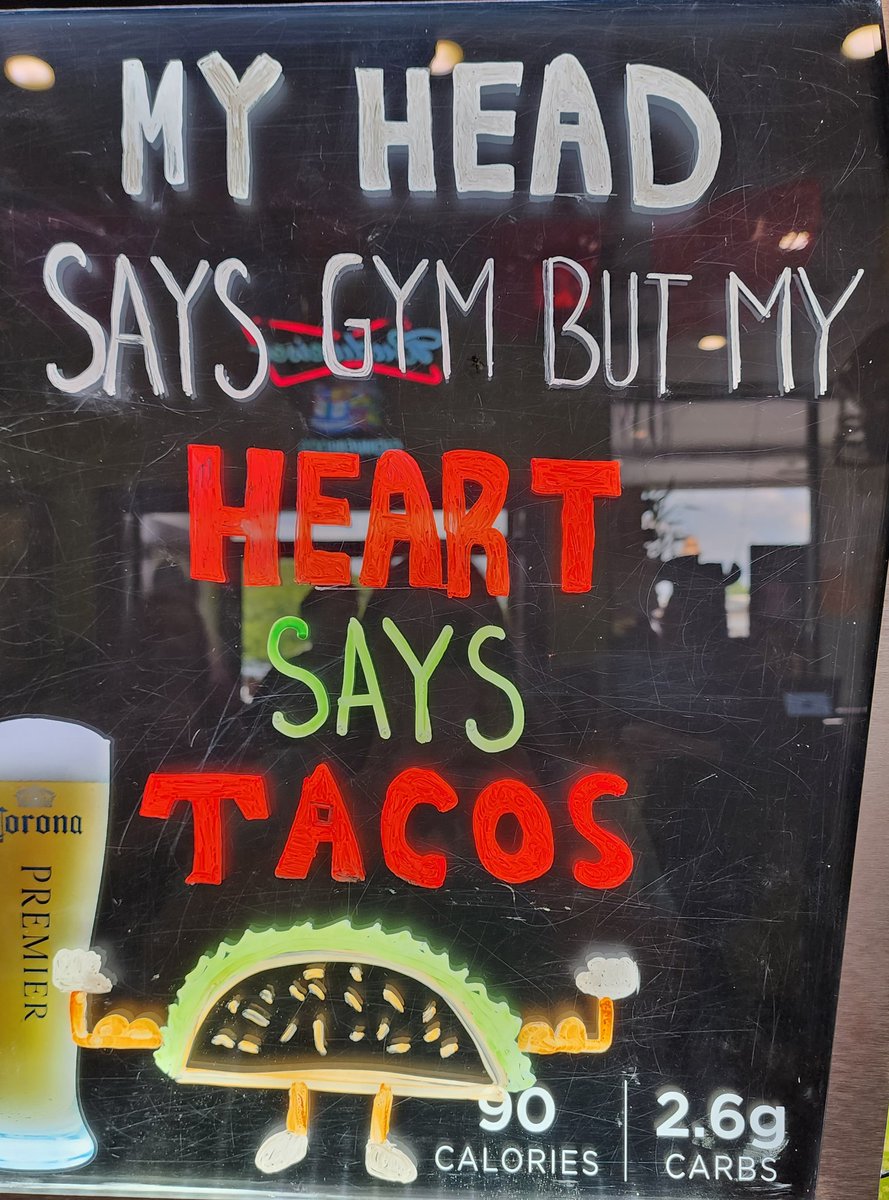 MY HEAD
SAYS GYM BUT MY
HEART
SAYS
TACOS
Corona
PREMIER
90
CALORIES
2.6g
CARBS